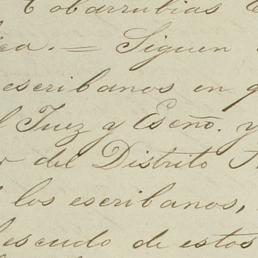 Cobarrubias
ca. = Siguen
escribanos en
Juez y Eseño. y
del Distrito
los escribanos,
escudo de estos